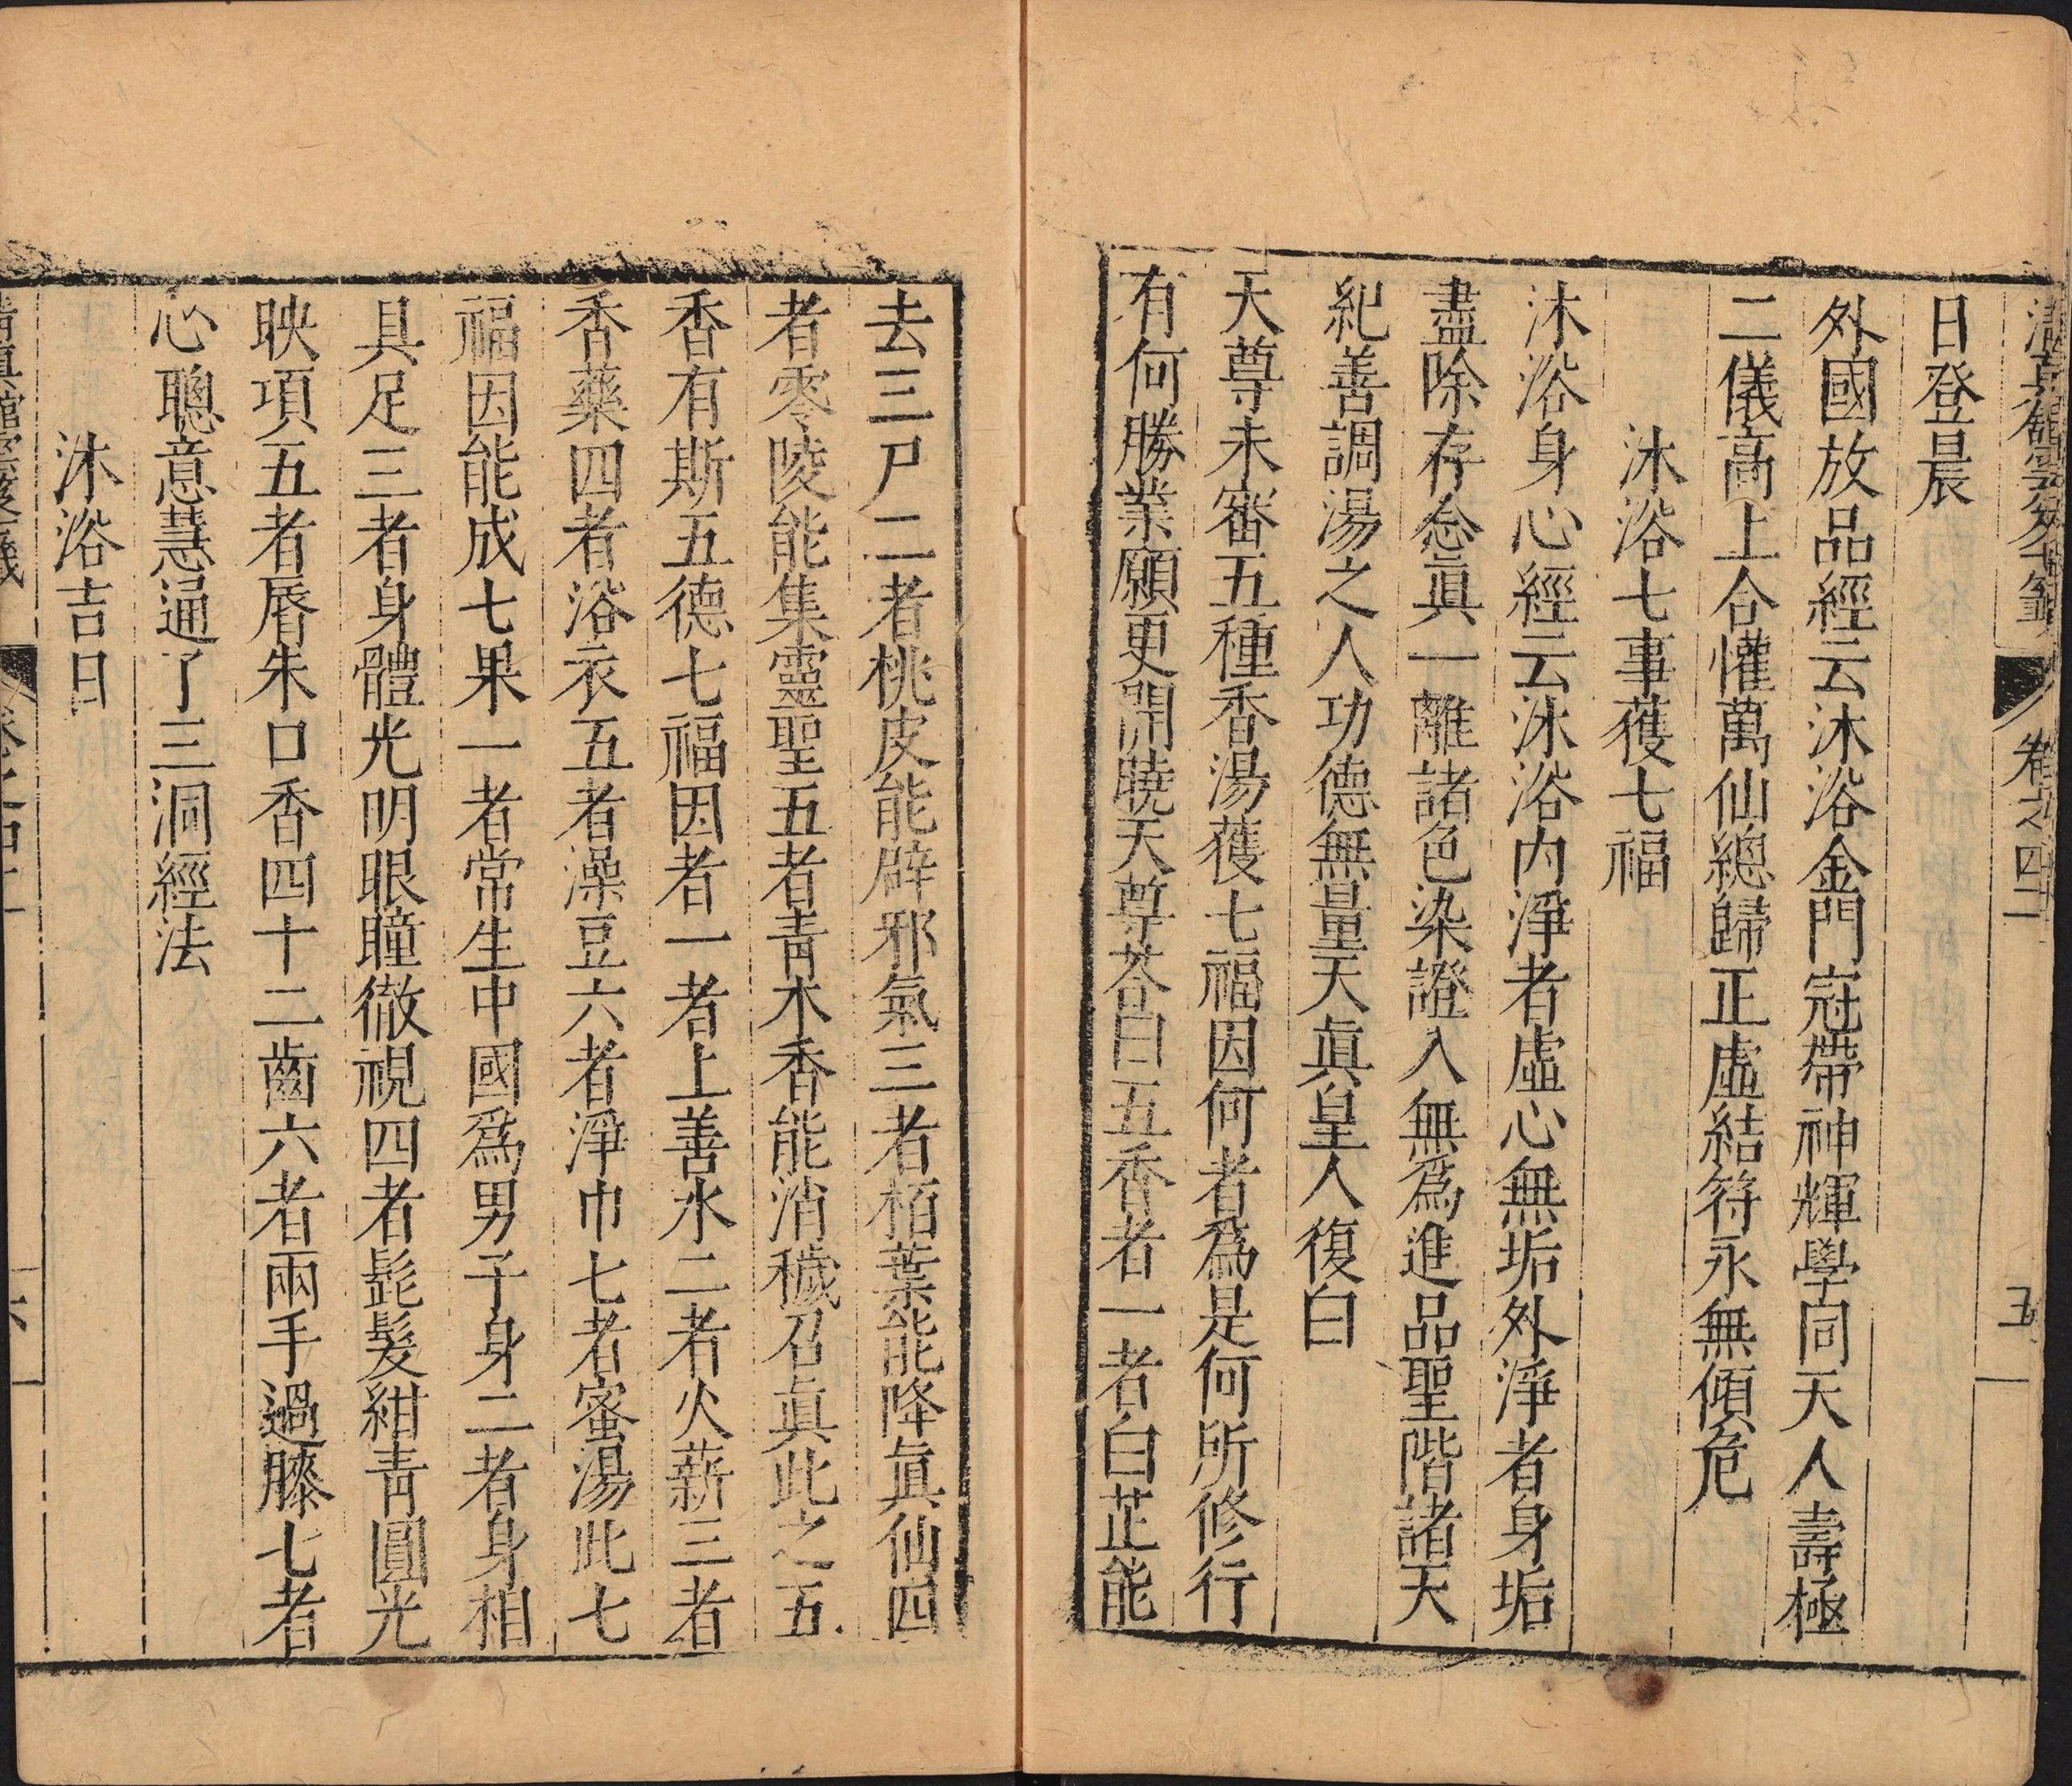 清眞館雲笈七籤 卷之四十一 五
日登晨
外國放品經云沐浴金門冠帶神輝學同天人壽極
二儀高上合懽萬仙總歸正虛結符永無傾危
沐浴七事獲七福
沐浴身心經云沐浴内淨者虛心無垢外淨者身垢
盡除存念眞一離諸色染證入無爲進品聖階諸天
紀善調湯之人功德無量天眞皇人復白
天尊未審五種香湯獲七福因何者爲是何所修行
有何勝業願更開曉天尊荅曰五香者一者白芷能
去三尸二者桃皮能辟邪氣三者栢葉能降眞仙四
者零陵能集靈聖五者青木香能消穢召眞此之五
香有斯五德七福因者一者上善水二者火薪三者
香藥四者浴衣五者澡豆六者淨巾七者蜜湯此七
福因能成七果一者常生中國爲男子身二者身相
具足三者身體光明眼瞳徹視四者髭髮紺青圓光
映項五者脣朱口香四十二齒六者兩手過膝七者
心聰意慧通了三洞經法
沐浴吉日